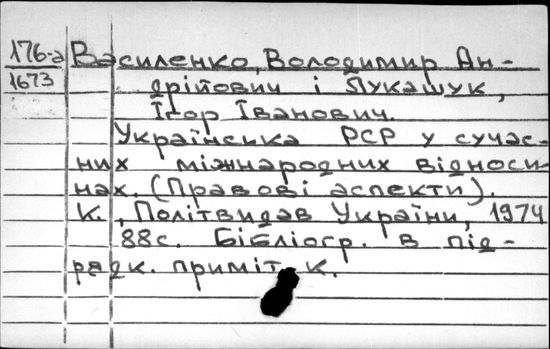 176-2 Василенко, Володимир Ан-
1673 дрійович і Лукашук,
Ігор Іванович.
Українська РСР у сучас-
них міжнародних відноси-
нах. (Правові аспекти).
К., Політвидав України, 1974
88с. Бібліогр. в під-
рядк. приміт. К.